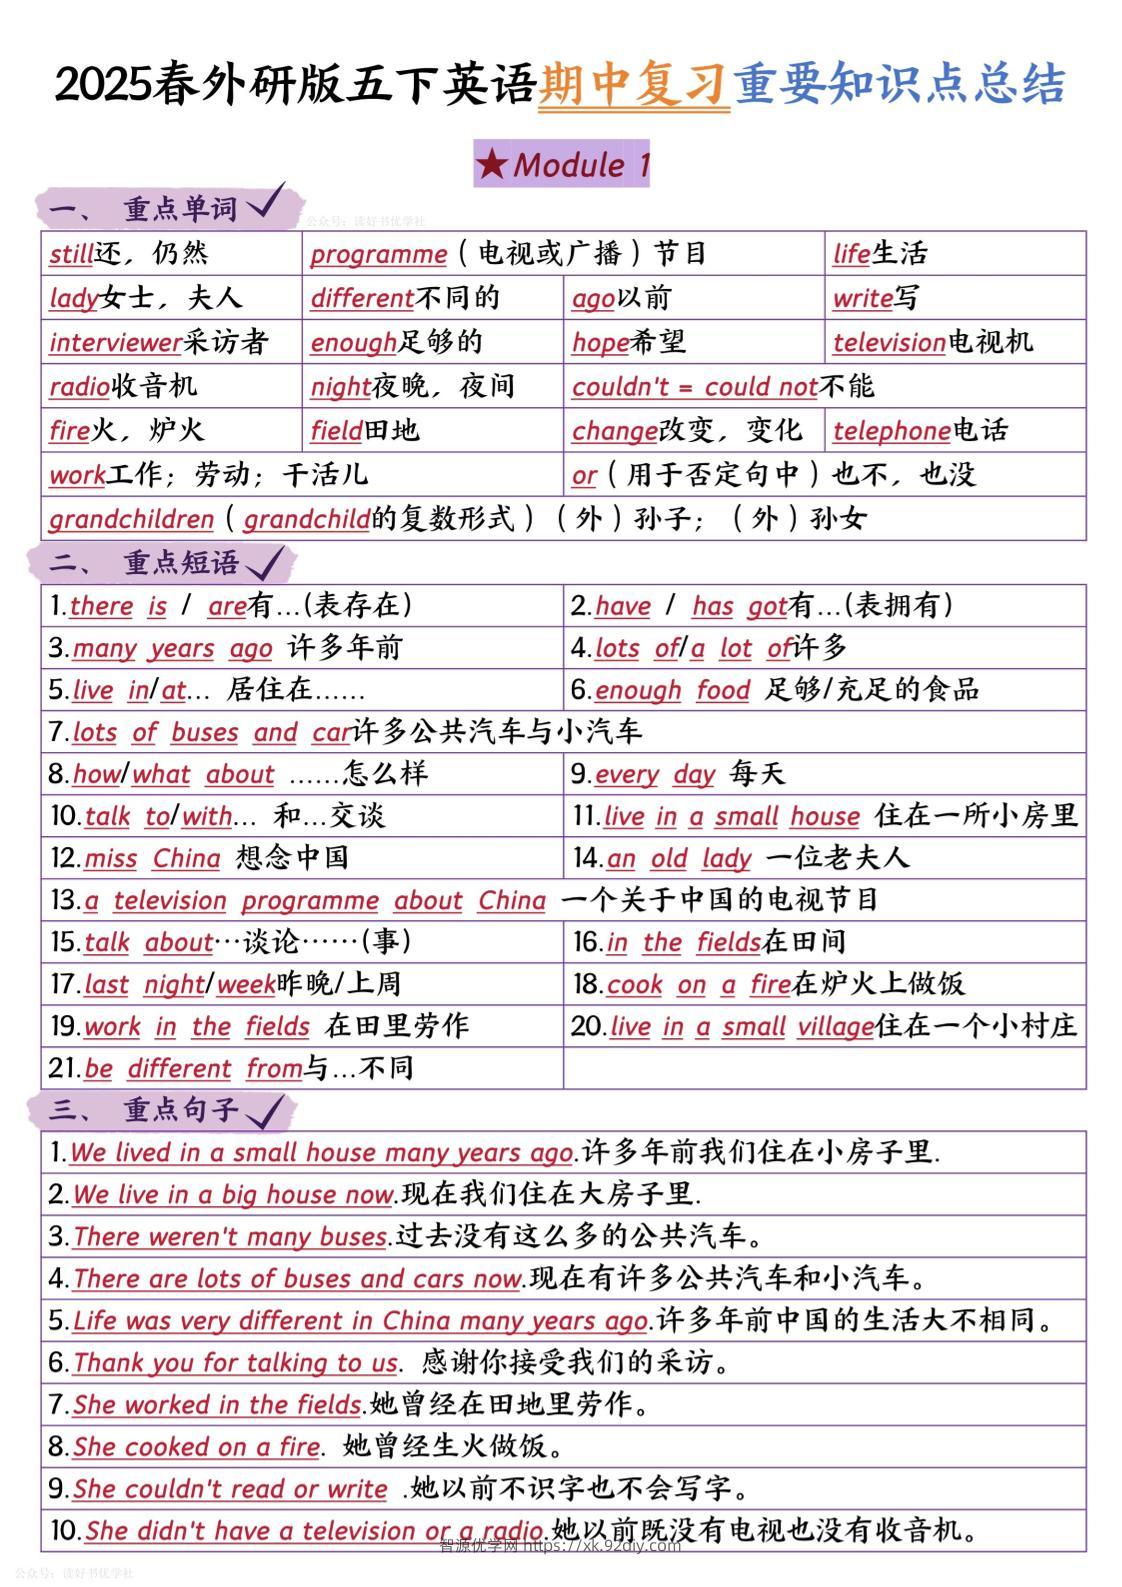 2025春外研版五下英语期中复习重要知识点总结
★Module 1
一、 重点单词
公众号：读好书优学社
still还，仍然 programme（电视或广播）节目 life生活
lady女士，夫人 different不同的 ago以前 write写
interviewer采访者 enough足够的 hope希望 television电视机
radio收音机 night夜晚，夜间 couldn't = could not不能
fire火，炉火 field田地 change改变，变化 telephone电话
work工作；劳动；干活儿 or（用于否定句中）也不，也没
grandchildren（grandchild的复数形式）（外）孙子；（外）孙女
二、 重点短语
1.there is / are有…(表存在) 2.have / has got有…(表拥有)
3.many years ago 许多年前 4.lots of/a lot of许多
5.live in/at… 居住在…… 6.enough food 足够/充足的食品
7.lots of buses and car许多公共汽车与小汽车
8.how/what about ……怎么样 9.every day 每天
10.talk to/with… 和…交谈 11.live in a small house 住在一所小房里
12.miss China 想念中国 14.an old lady 一位老夫人
13.a television programme about China 一个关于中国的电视节目
15.talk about…谈论……(事) 16.in the fields在田间
17.last night/week昨晚/上周 18.cook on a fire在炉火上做饭
19.work in the fields 在田里劳作 20.live in a small village住在一个小村庄
21.be different from与…不同
三、 重点句子
1.We lived in a small house many years ago.许多年前我们住在小房子里.
2.We live in a big house now.现在我们住在大房子里.
3.There weren't many buses.过去没有这么多的公共汽车。
4.There are lots of buses and cars now.现在有许多公共汽车和小汽车。
5.Life was very different in China many years ago.许多年前中国的生活大不相同。
6.Thank you for talking to us. 感谢你接受我们的采访。
7.She worked in the fields.她曾经在田地里劳作。
8.She cooked on a fire. 她曾经生火做饭。
9.She couldn't read or write .她以前不识字也不会写字。
10.She didn't have a television or a radio.她以前既没有电视也没有收音机。
智源优学网 https://xk.92diy.com
公众号：读好书优学社